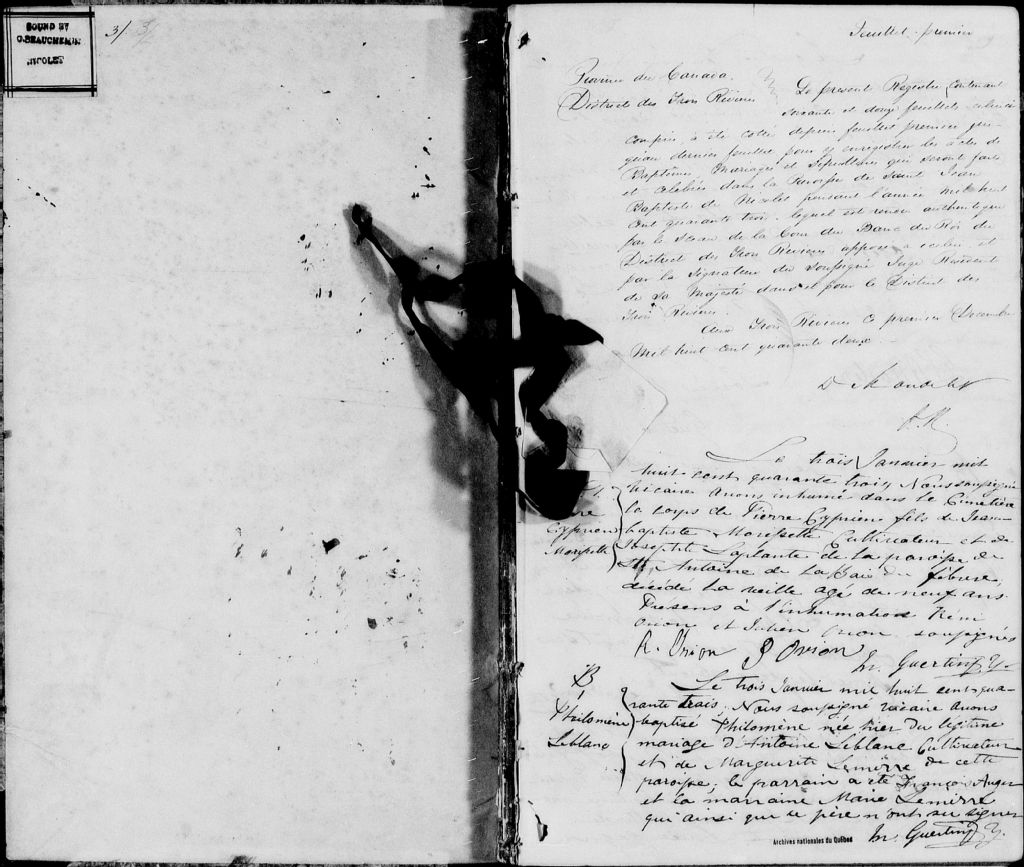 BOUND BY
O. BEAUCHEMIN
NICOLET
31
feuillet premier
Province du Canada.
District des Trois Rivières
Le present Registre contenant
soixante et douze feuillets
compris, a été cotté depuis feuillet premier jus-
qu'au dernier feuillet pour y enregistrer les actes de
Baptêmes, Mariages et Sépultures qui seront faits
et célébrés dans la Paroisse de Saint Jean
Baptiste de Nicolet pendant l'année mil huit
cent quarante trois. lequel est rendu authentique
par le Sceau de la Cour du Banc du Roi du
District des Trois Rivières apposé a icelui et
par la Signature du Soussigné Juge Resident
de Sa Majesté dans et pour le District des
Trois Rivières.
Aux Trois Rivières ce premier Decembre
Mil huit cent quarante deux.
Le trois Janvier mil
huit cent quarante trois Nous soussigné
vicaire avons inhumé dans le Cimetière
le corps de Pierre Cyprien fils de Jean-
baptiste Morissette Cultivateur et de
Joseptte Laplante de la paroisse de
St. Antoine de La Baie du febvre,
décédé la veille agé de neuf ans.
Presens à l'inhumation Rémi
Orion et Julien Orion soussignés
S.
Cyprien
Morissette
R. Orion J Orion
M. Guertin
B
Philomène
Leblanc
Le trois Janvier mil huit cent qua-
rante trois. Nous soussigné vicaire avons
baptisé Philomène née hier du légitime
mariage d'Antoine Leblanc Cultivateur
et de Marguerite Lemirre de cette
paroisse; le parrain a été François Auger
et la marraine Marie Lemirre
qui ainsi que le père n'ont su signer
M. Guertin
Archives nationales du Québec